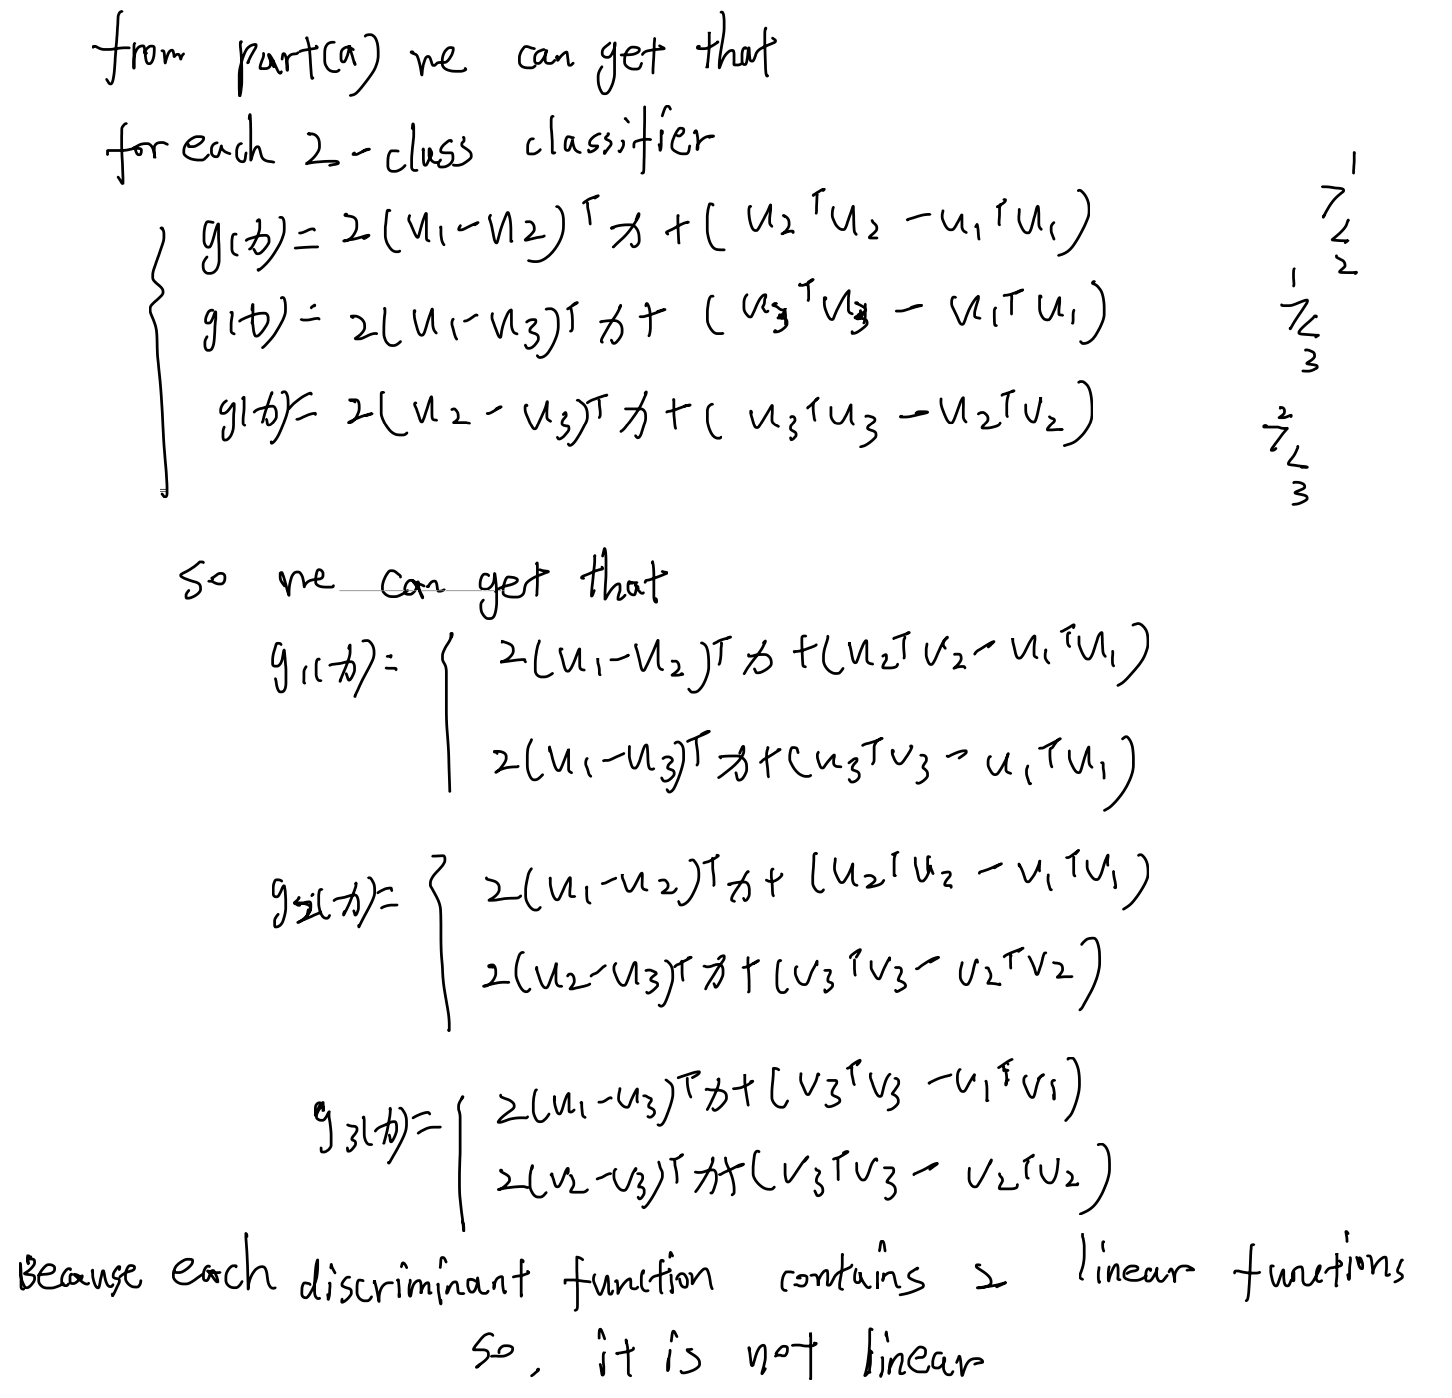 from part(a) we can get that
for each 2-class classifier
g(x)= 2(u₁-u₂)ᵀx+(u₂ᵀu₂-u₁ᵀu₁) 1 > < 2
g(x)= 2(u₁-u₃)ᵀx+(u₃ᵀu₃-u₁ᵀu₁) 1 > < 3
g(x)= 2(u₂-u₃)ᵀx+(u₃ᵀu₃-u₂ᵀu₂) 2 > < 3
so we can get that
g₁(x)= { 2(u₁-u₂)ᵀx+(u₂ᵀu₂-u₁ᵀu₁)
2(u₁-u₃)ᵀx+(u₃ᵀu₃-u₁ᵀu₁)
g₂(x)= { 2(u₁-u₂)ᵀx+(u₂ᵀu₂-u₁ᵀu₁)
2(u₂-u₃)ᵀx+(u₃ᵀu₃-u₂ᵀu₂)
g₃(x)= { 2(u₁-u₃)ᵀx+(u₃ᵀu₃-u₁ᵀu₁)
2(u₂-u₃)ᵀx+(u₃ᵀu₃-u₂ᵀu₂)
Because each discriminant function contains 2 linear functions
so, it is not linear